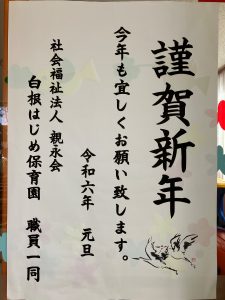 謹賀新年
今年も宜しくお願い致します。
令和六年　元旦
社会福祉法人 親永会
白根はじめ保育園　職員一同